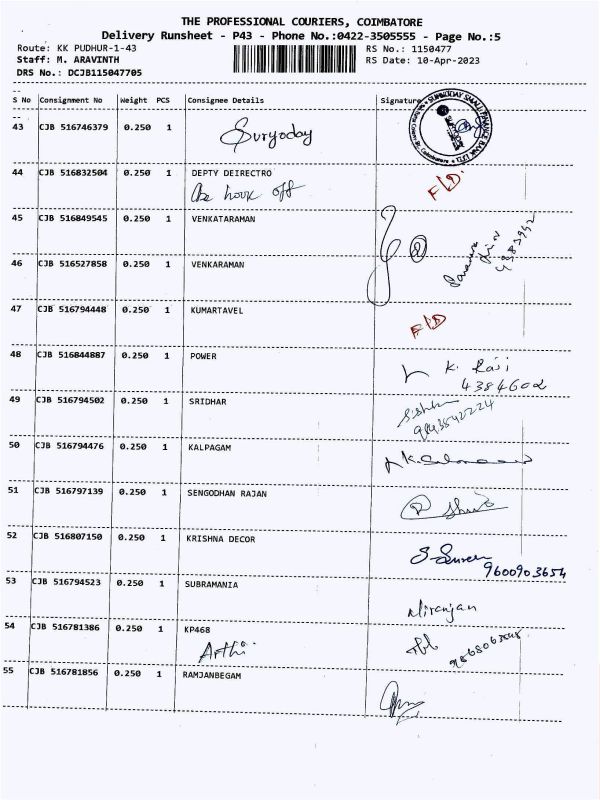 THE PROFESSIONAL COURIERS, COIMBATORE
Delivery Runsheet - P43 - Phone No.:0422-3505555 - Page No.:5
Route: KK PUDHUR-1-43 RS No.: 1150477
Staff: M. ARAVINTH RS Date: 10-Apr-2023
DRS No.: DCJB115047705
S No Consignment No Weight PCS Consignee Details Signature
43 CJB 516746379 0.250 1 Suryoday
44 CJB 516832504 0.250 1 DEPTY DEIRECTRO
hour off
F/D.
45 CJB 516849545 0.250 1 VENKATARAMAN
46 CJB 516527858 0.250 1 VENKARAMAN
47 CJB 516794448 0.250 1 KUMARTAVEL
F/D
48 CJB 516844887 0.250 1 POWER
K. Raji
4384602
49 CJB 516794502 0.250 1 SRIDHAR
50 CJB 516794476 0.250 1 KALPAGAM
51 CJB 516797139 0.250 1 SENGODHAN RAJAN
52 CJB 516807150 0.250 1 KRISHNA DECOR
9600903654
53 CJB 516794523 0.250 1 SUBRAMANIA
Niranjan
54 CJB 516781386 0.250 1 KP468
Arthi
55 CJB 516781856 0.250 1 RAMJANBEGAM